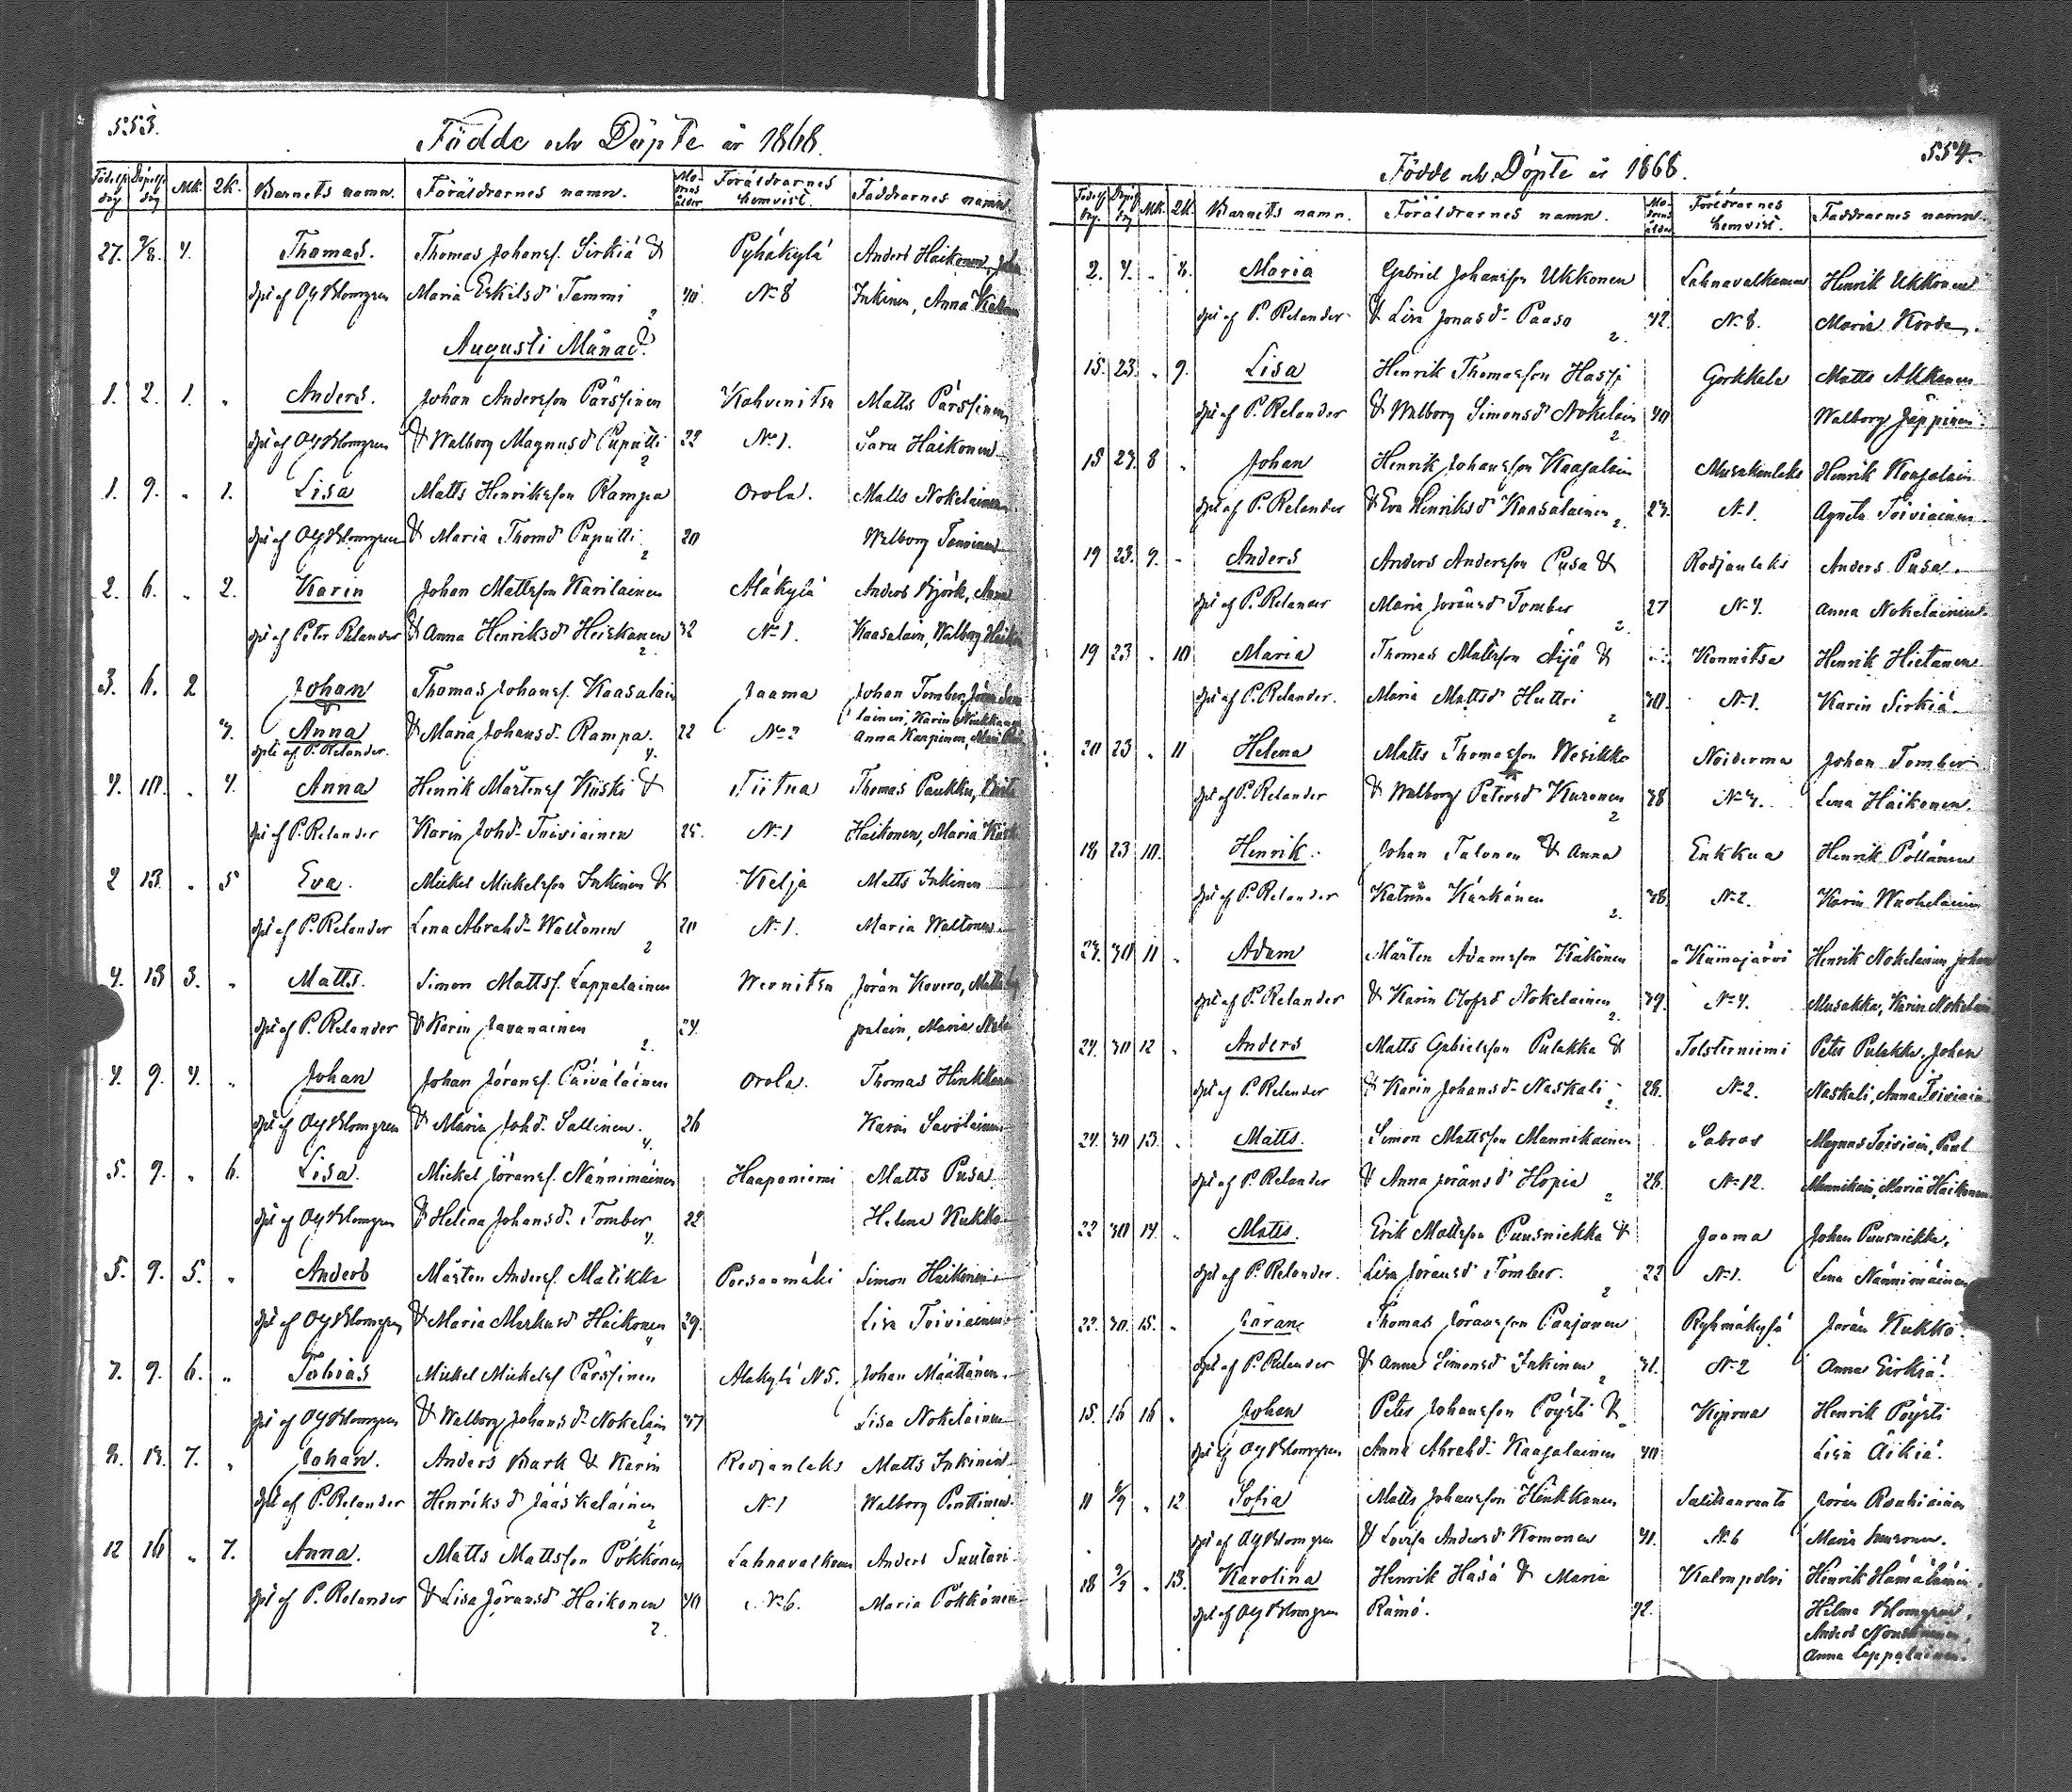 553.
Födde och Döpte år 1868.
Födelse dag Döpelse dag MK. 2K. Barnets namn. Föräldrarnes namn. Modrens ålder Föräldrarnes hemvist. Faddrarnes namn.
27. 2/8. 4. Thomas. Thomas Johansf. Sirkiä & Pyhäkylä Anders Haikonen, John
dpt af OGBlomgren Maria Eskilsd Tammi 2 40 No 8 Inkinen, Anna
Augusti Månad.
1. 2. 1. „ Anders. Johan Andersson Pärssinen Kahvenitsa Matts Pärssinen
dpt af OGBlomgren & Walborg Magnusd Puputti 2 22 No 1. Sara Haikonen
1. 9. „ 1. Lisa Matts Henriksson Rampa Orola. Matts Nokelainen
dpt af OGBlomgren & Maria Thomd Puputti 2 20 Walborg
2. 6. „ 2. Karin Johan Mattsson Karilainen Alakylä Anders Björk, Anna
dpt af Peter Relander & Anna Henriksd Heiskanen 2. 32 No 1. Kaasalain, Walborg
3. 6. 2 Johan Thomas Johansf. Kaasalain Jaama Johan Tomber,
& lainen, Karin
3. Anna & Maria Johansd. Rampa. 4. 22 No 2 Anna Karpinen,
dpte af P. Relander.
4. 10. „ 4. Anna Henrik Mårtensf Kiiski & Tiitua Thomas Paukku,
dpt af P. Relander Karin Johd. Toiviainen 25. No 1 Haikonen, Maria
2 13. „ 5 Eva. Mickel Mickelsson Inkinen & Kelja Matts Inkinen
dpt af P. Relander Lena Abrahd. Waltonen 2 20 No 1. Maria Waltonen
4. 13 3. „ Matts. Simon Mattsf. Lappalainen Wernitsa Jöran Kovero, Matts Lap
dpt af P. Relander & Karin Javanainen 2. 24. palain, Maria
4. 9. 4. „ Johan Johan Jöransf. Päiväläinen Orola. Thomas Hinkkanen
dpt af OGBlomgren & Maria Johd. Sallinen. 4. 26 Karin Savolainen
5. 9. „ 6. Lisa. Mickel Jöransf. Nännimäinen Haapaniemi Matts Pusa
dpt af OGBlomgren & Helena Johansd. Tomber 4. 22 Helena Kukko
5. 9. 5. „ Anders Mårten Andersf. Matikka Porsaamäki Simon Haikonen
dpt af OGBlomgren & Maria Markusd Haikonen 29. Lisa Toiviainen
7. 9. 6. „ Tobias Mickel Mickelsf Pärssinen Alakylä N 5. Johan Määttänen.
dpt af OGBlomgren & Walborg Johansd. Nokelain 2 37 Lisa Nokelainen
8. 13. 7. „ Johan. Anders Bark & Karin Rodjanlaks Matts Inkinen
dpt af P. Relander Henriksd Jääskeläinen 2 No 1 Walborg Penttinen.
12 16 „ 7. Anna. Matts Mattsson Pökkönen Lahnavalkama Anders Suutari
dpt af P. Relander & Lisa Jöransd Haikonen 2. 40 No 6. Maria Pökkönen
554.
Födde och Döpte år 1868.
Födelse dag. Döpelse dag MK. 2K. Barnets namn. Föräldrarnes namn. Modrens ålder Föräldrarnes hemvist. Faddrarnes namn.
2. 4. „ 8. Maria Gabriel Johansson Ukkonen Lahnavalkama Henrik Ukkonen
dpt af P. Relander & Lisa Jonasd. Paaso 2. 42. No 8. Maria
15. 23. „ 9. Lisa Henrik Thomasson Hassi Gorkkala Matts Akkanen
dpt af P. Relander & Walborg Simonsd Nokelain 2 40 Walborg Jäppinen.
18 23. 8 „ Johan Henrik Johansson Kaasalain Musakanlaks Henrik Kaasalain
dpt af P. Relander & Eva Henriksd Kaasalainen 2. 23. No 1. Agneta Toiviainen
19 23. 9. „ Anders Anders Andersson Pusa & Rodjanlaks Anders Pusa
dpt af P. Relander Maria Jöransd Tomber 2 27 No 4. Anna Nokelainen.
19 23 „ 10 Maria Thomas Mattsson Äijä & Konnitsa Henrik Hietanen
dpt af P. Relander. Maria Mattsd Huttri 2 30. No 1. Karin Sirkiä
20 23 „ 11 Helena Matts Thomasson Wesikko Noiderma Johan Tomber
dpt af P. Relander & Walborg Petersd Kuronen 2 38 No 3. Lena Haikonen.
18 23 10. Henrik. Johan Talonen & Anna Enkkua Henrik Pöllänen
dpt af P. Relander Katrina Kärkänen 2. 38. No 2. Karin
23. 30 11 „ Adam Mårten Adamsson Käkönen Kiimajärvi Henrik Nokelainen, Johan
dpt af P. Relander & Karin Olofsd Nokelainen 2. 39. No 4. Musakka, Karin Nokelain
24. 30 12 „ Anders Matts Gabrielsson Pulakka & Tolsterniemi Peter Pulakka, Johan
dpt af P. Relander & Karin Johansd. Naskali 2. 28. No 2. Naskali, Anna Toiviain
24. 30 13. „ Matts. Simon Mattsson Mannikainen Labros Magnus Toiviain, Paul
dpt af P. Relander & Anna Jöransd Hopia 2 28. No 12. Mannikain, Maria Haikonen
22 30 14. „ Matts. Erik Mattsson Puusniekka & Jaama Johan Puusniekka,
dpt af P. Relander. Lisa Jöransd Tomber. 2 22 No 1. Lena Nännimäinen
22. 30. 15. „ Göran Thomas Jöransson Paajanen Ryhmäkylä Jöran Kukko.
dpt af P. Relander & Anna Simonsd Inkinen 2 31. No 2 Anna Sirkiä.
15. 16 16 „ Johan Peter Johansson Pöysti & Kiprua Henrik Pöysti
dpt af OGBlomgren Anna Abrahd. Kaasalainen 40 Lisa Äikiä.
11 6/9 „ 12 Sofia Matts Johansson Hinkkanen Salikanranta Jöran Raahiainen
dpt af OGBlomgren & Lovisa Andersd Komonen 41. No 6 Maria
18 2/9 „ 13. Karolina Henrik Häsä & Maria Kalonpolvi Henrik Hämäläinen.
dpt af OGBlomgren Rämö. 42. Hilma Blomgren,
Anders
Anna Lappalainen.